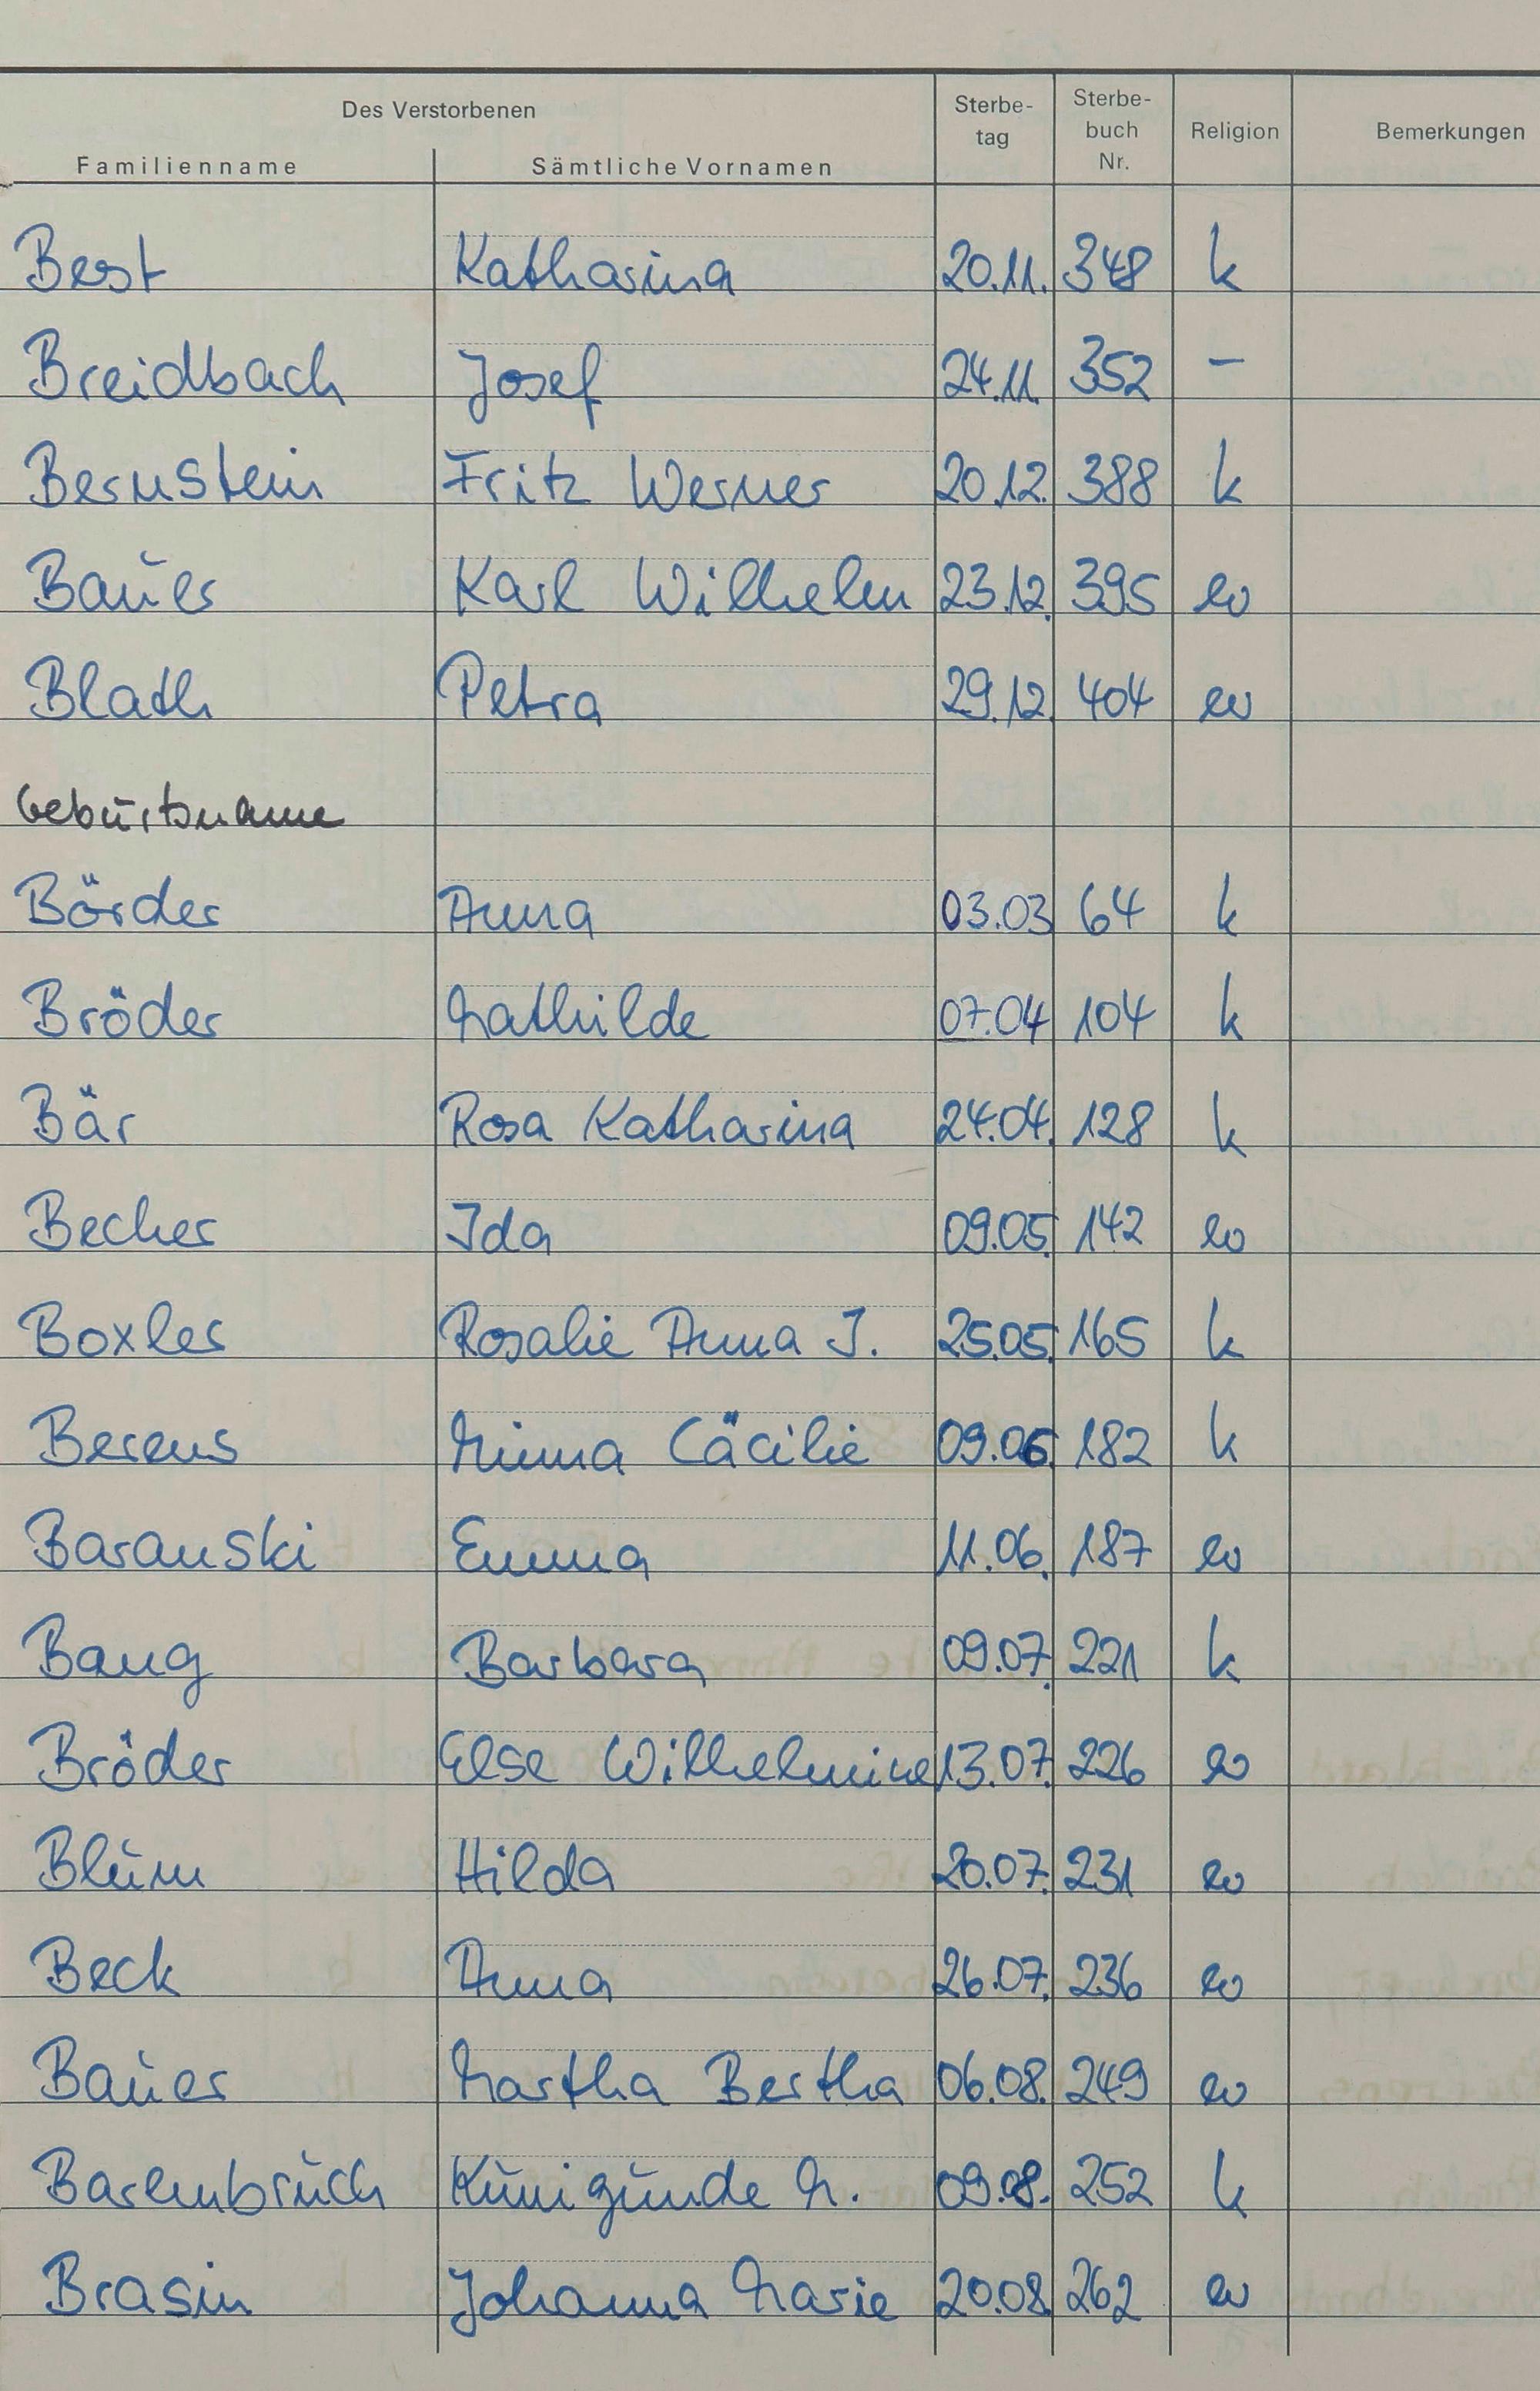 Des Verstorbenen
Familienname Sämtliche Vornamen Sterbe-tag Sterbe-buch Nr. Religion Bemerkungen
Best Katharina 20.11. 348 k
Breidbach Josef 24.11. 352 –
Bernstein Fritz Werner 20.12. 388 k
Bauer Karl Wilhelm 23.12. 395 ev
Blath Petra 29.12. 404 ev
Geburtsname
Börder Anna 03.03 64 k
Bröder Mathilde 07.04 104 k
Bär Rosa Katharina 24.04. 128 k
Becher Ida 09.05. 142 ev
Boxler Rosalie Anna J. 25.05. 165 k
Berens Minna Cäcilie 09.06. 182 k
Baranski Emma 11.06. 187 ev
Bang Barbara 09.07. 221 k
Bröder Else Wilhelmine 13.07. 226 ev
Blum Hilda 20.07. 231 ev
Beck Anna 26.07. 236 ev
Bauer Martha Bertha 06.08. 249 ev
Barlenbruch Kunigunde M. 09.08. 252 k
Brasin Johanna Marie 20.08. 262 ev